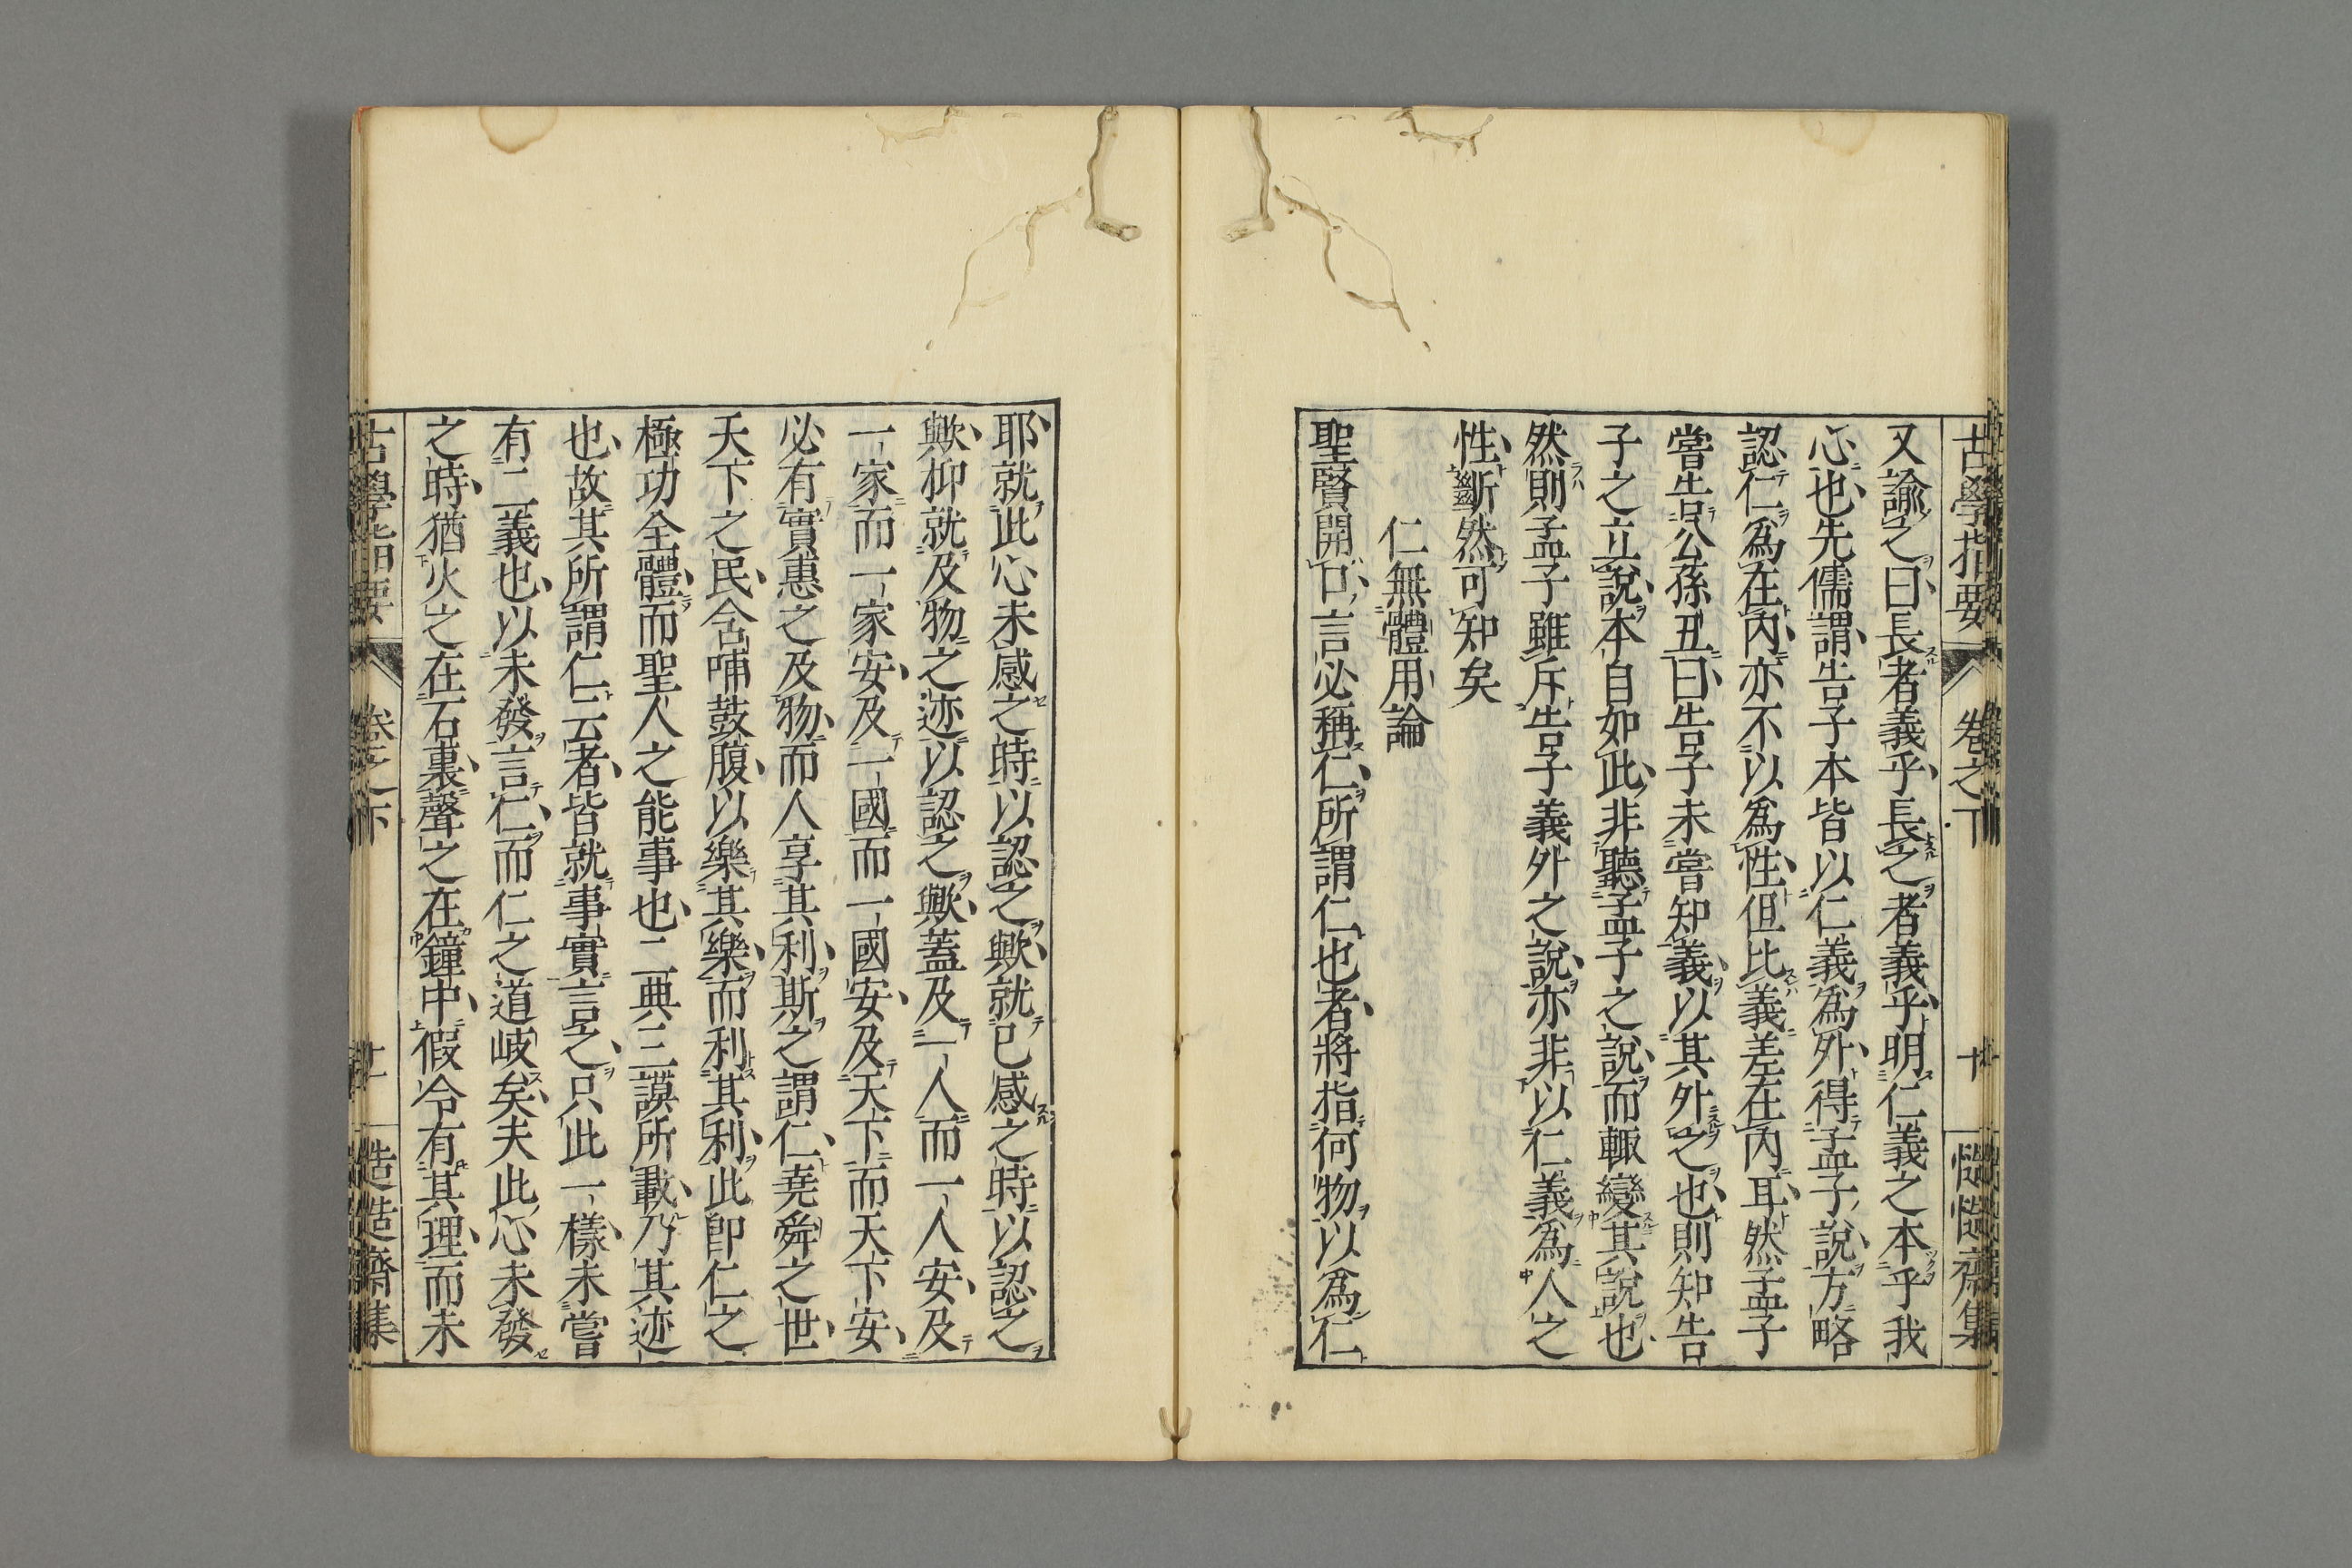 古學指要 卷之下 十 慥慥齋集
又諭之曰長者義乎長之者義乎明仁義之本乎我
心也先儒謂告子本皆以仁義爲外得孟子說方略
認仁爲在內亦不以爲性但比義差在內耳然孟子
嘗告公孫丑曰告子未嘗知義以其外之也則知告
子之立說本自如此非聽孟子之說而輙變其說也
然則孟子雖斥告子義外之說亦非以仁義爲人之
性斷然可知矣
仁無體用論
聖賢開口言必稱仁所謂仁也者將指何物以爲仁
耶就此心未感之時以認之歟就已感之時以認之
歟抑就及物之迹以認之歟蓋及一人而一人安及
一家而一家安及一國而一國安及天下而天下安
必有實惠之及物而人享其利斯之謂仁堯舜之世
天下之民含哺鼓腹以樂其樂而利其利此卽仁之
極功全體而聖人之能事也二典三謨所載乃其迹
也故其所謂仁云者皆就事實言之只此一樣未嘗
有二義也以未發言仁而仁之道岐矣夫此心未發
之時猶火之在石裏聲之在鐘中假令有其理而未
古學指要 卷之下 十一 慥慥齋集